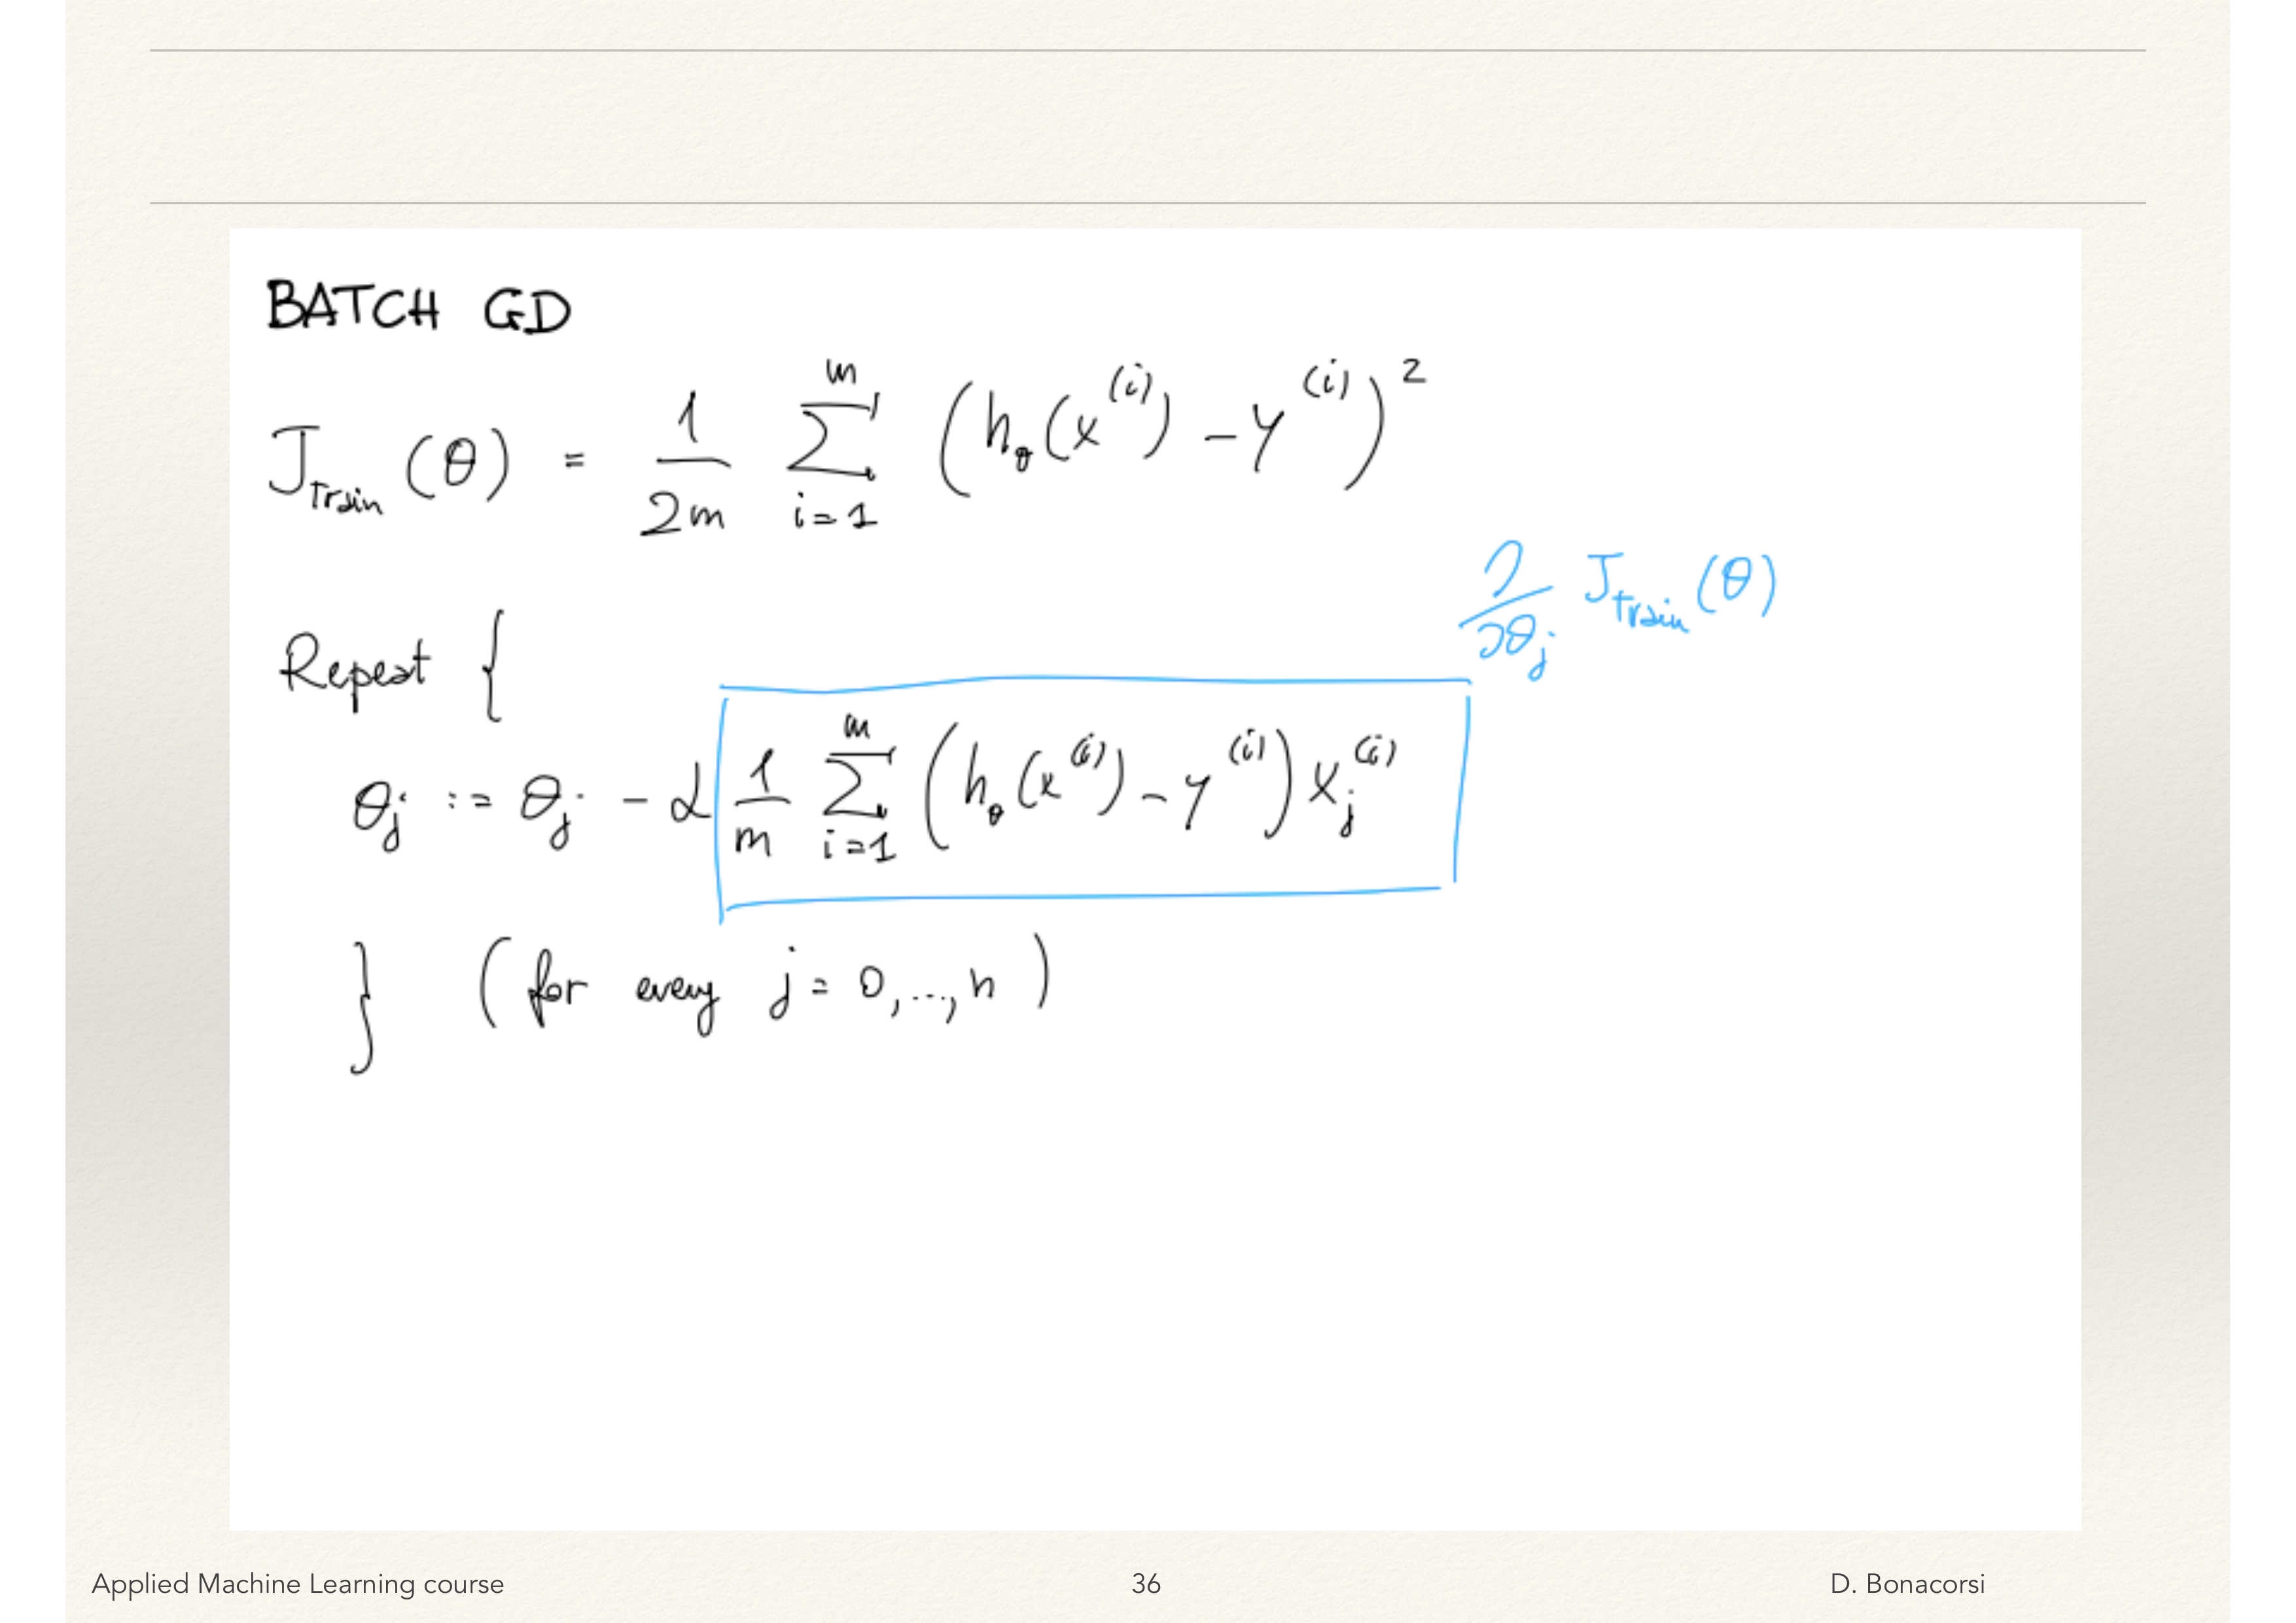 BATCH GD
J_train (θ) = 1/2m ∑_{i=1}^{m} (h_θ(x^(i)) − y^(i))^2
∂/∂θ_j J_train (θ)
Repeat {
θ_j := θ_j − α 1/m ∑_{i=1}^{m} (h_θ(x^(i)) − y^(i)) x_j^(i)
} (for every j = 0,...,n)
Applied Machine Learning course 36 D. Bonacorsi